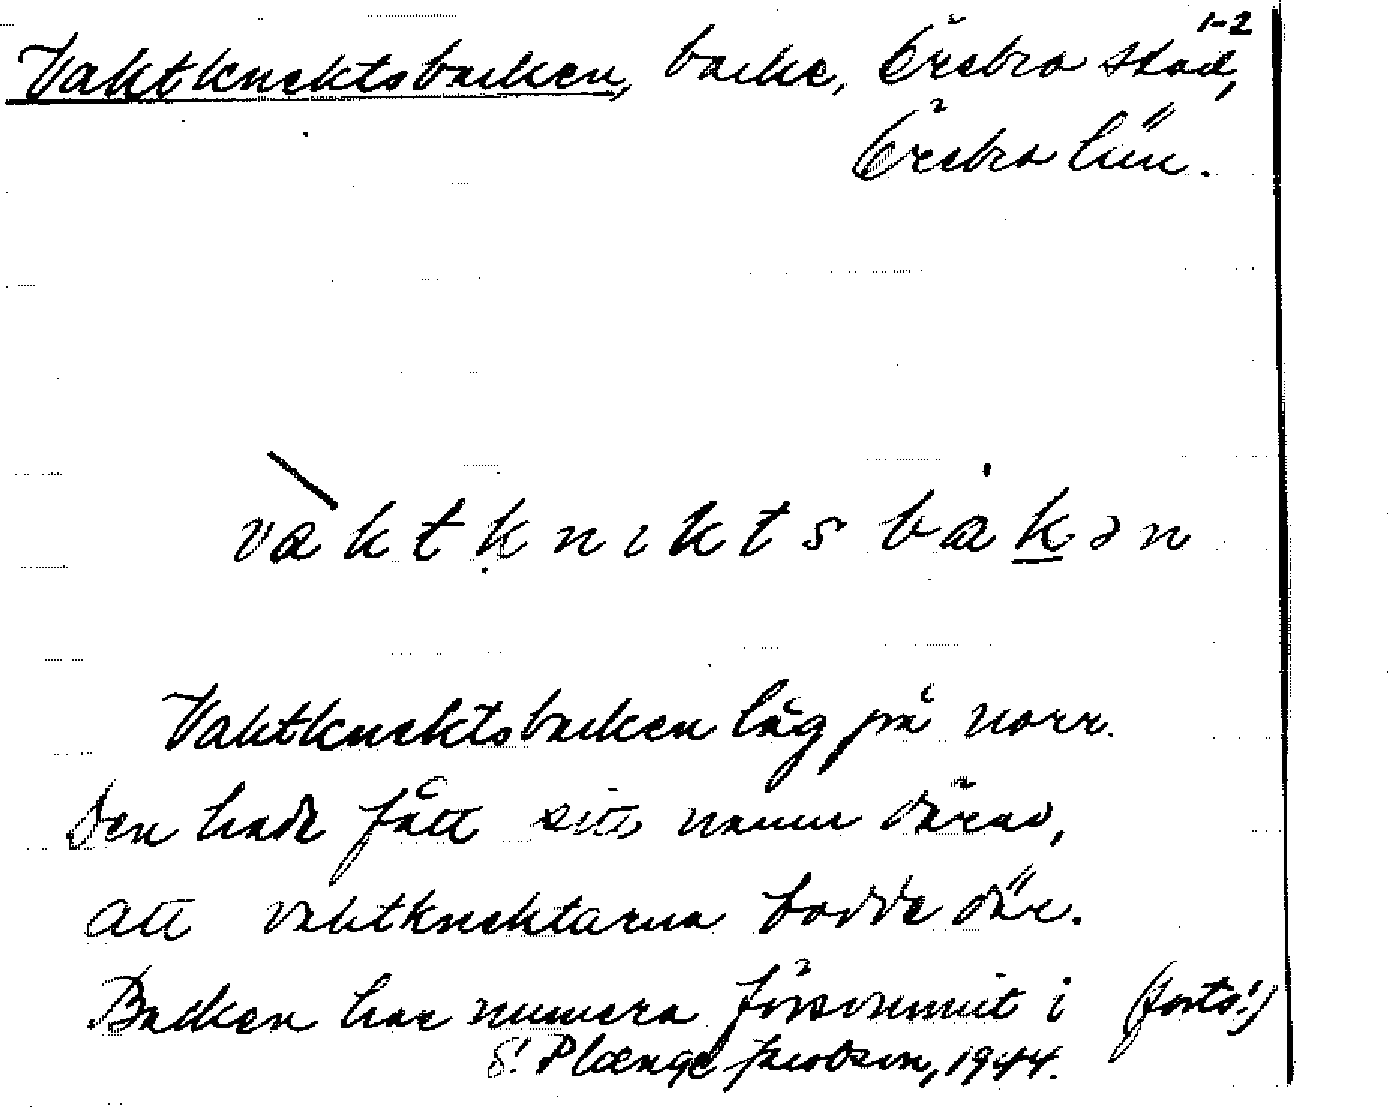 1-2
Vaktknektsbacken, backe, Örebro stad,
Örebro län.
vàktknɩktsbakən
Vaktknektsbacken låg på norr.
Den hade fått sitt namn därav,
att vaktknektarna bodde där.
Backen har numera försvunnit i (forts.!)
S! Plænge Jacobson, 1944.